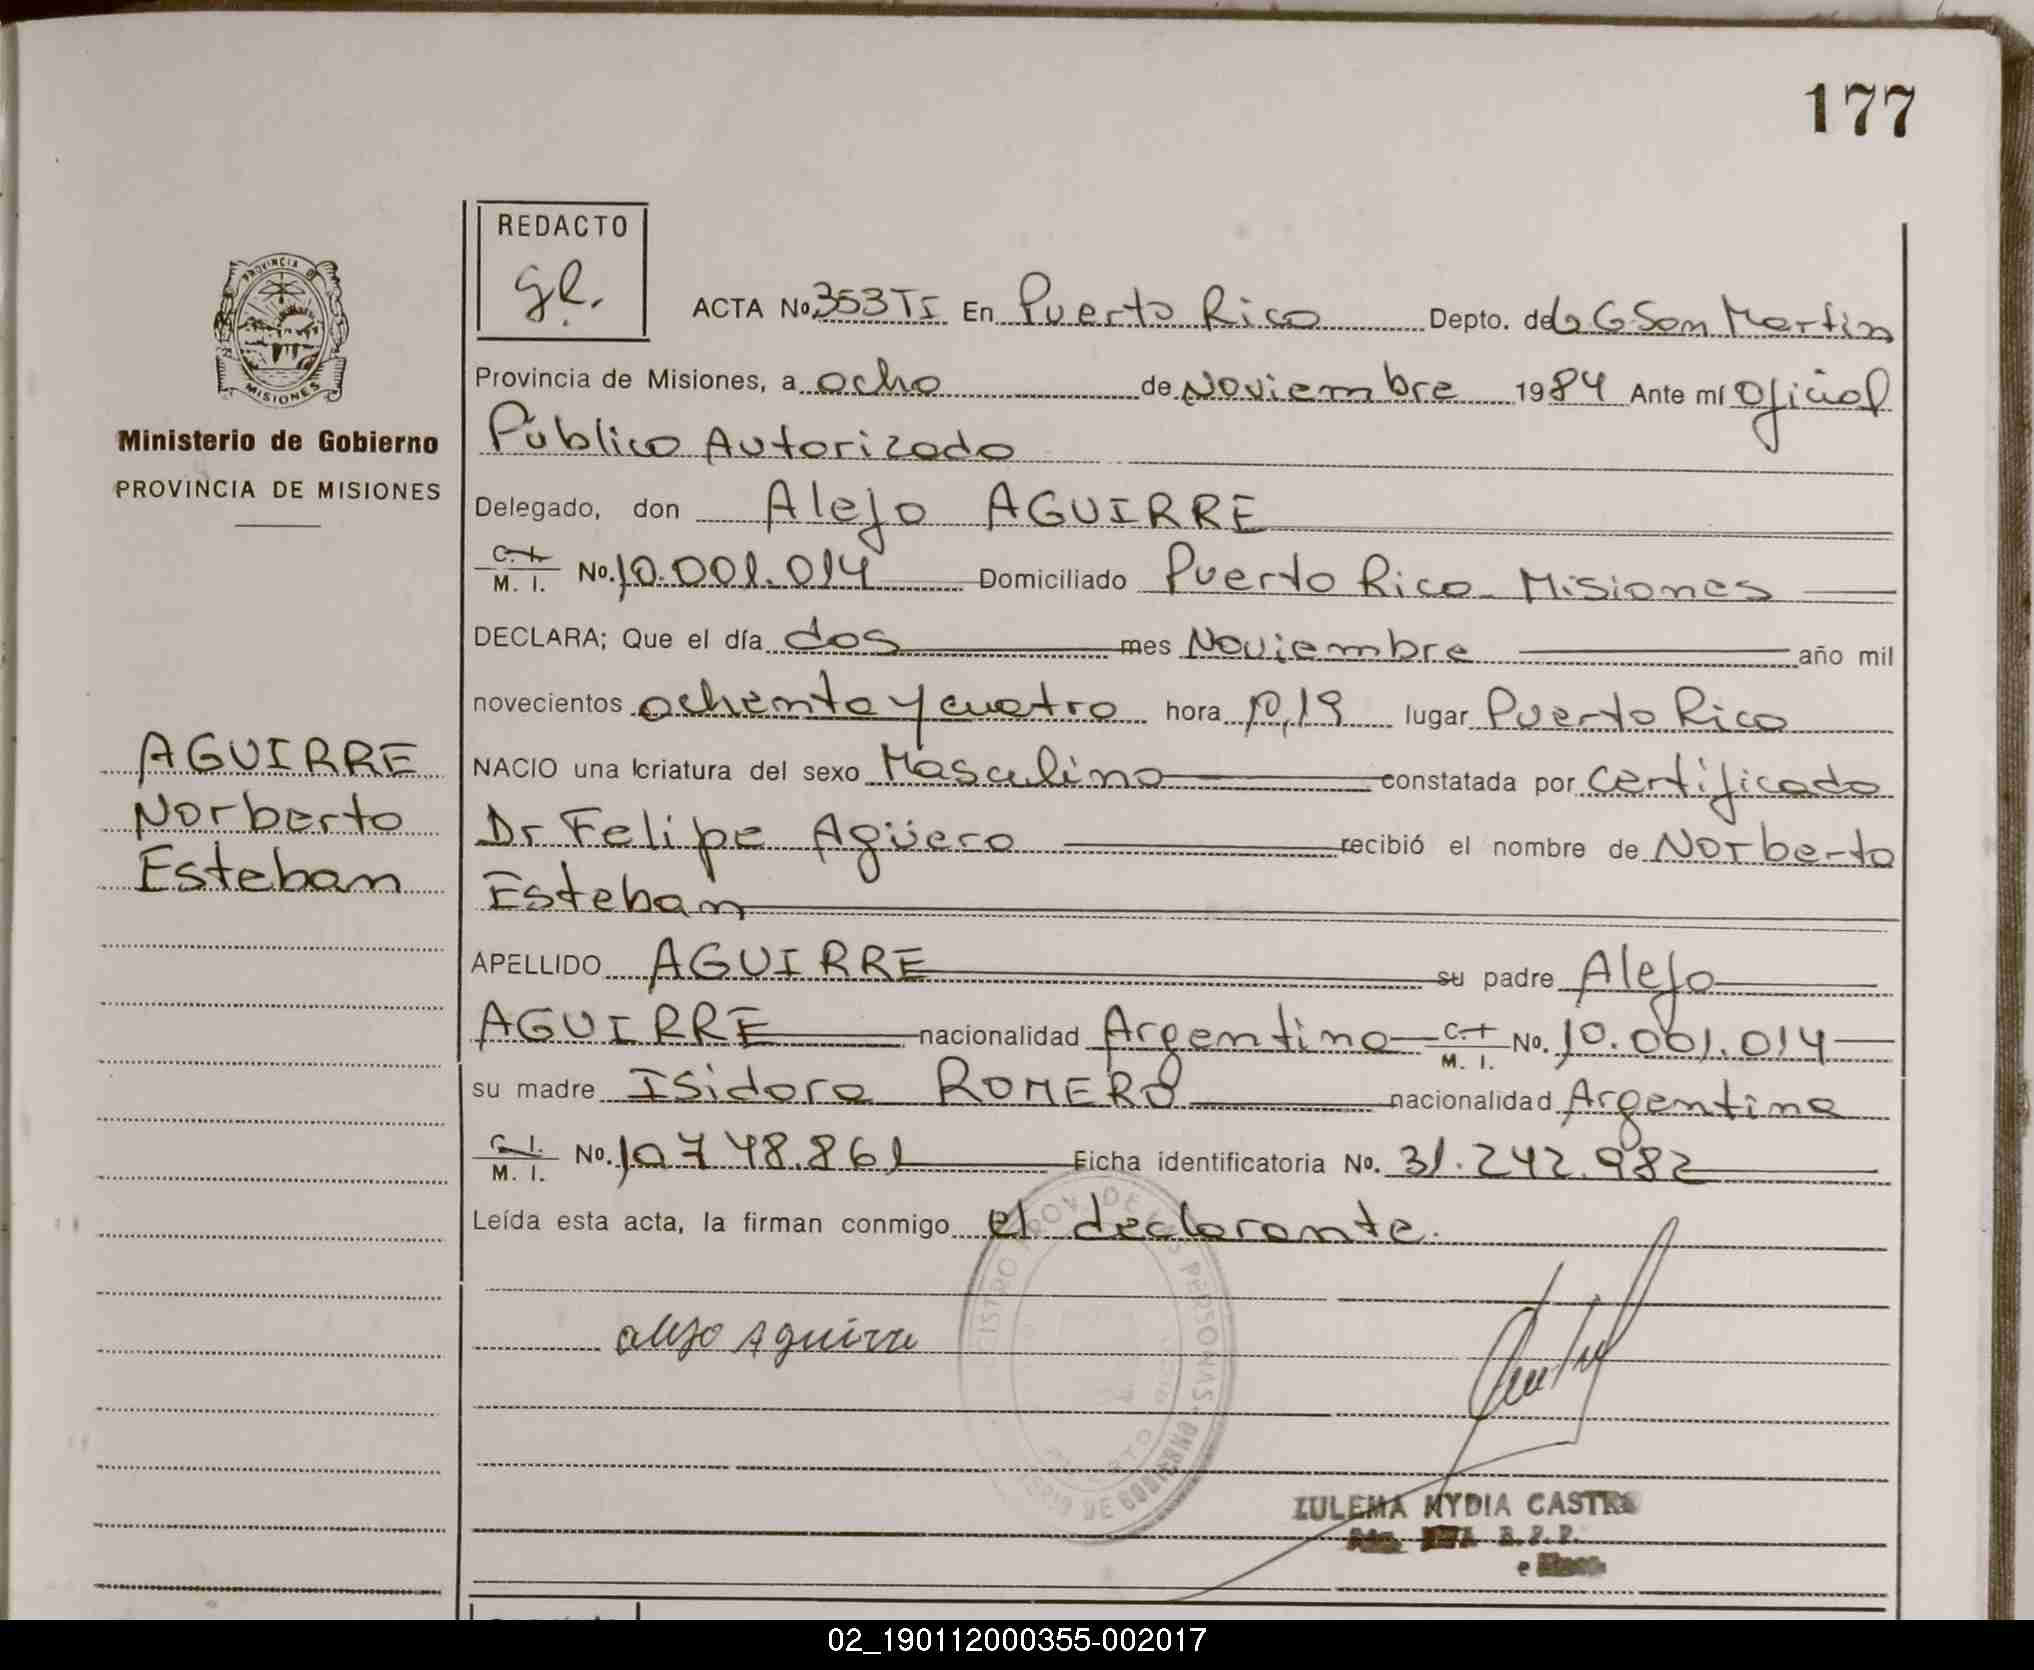 177
REDACTO
ge.
ACTA No. 353 TI En Puerto Rico Depto. de L G San Martin
Provincia de Misiones, a ocho de Noviembre 1984 Ante mí Oficial
Público Autorizado
Delegado, don Alejo AGUIRRE
C. I. M. I. No. 10.001.014 Domiciliado Puerto Rico - Misiones
DECLARA; Que el día dos mes Noviembre año mil
novecientos ochenta y cuatro hora 10,19 lugar Puerto Rico
NACIO una criatura del sexo Masculino constatada por certificado
Dr Felipe Agüero recibió el nombre de Norberto
Esteban
APELLIDO AGUIRRE su padre Alejo
AGUIRRE nacionalidad Argentina C. I. M. I. No. 10.001.014
su madre Isidora ROMERO nacionalidad Argentina
C. I. M. I. No. 10748.861 Ficha identificatoria No. 31.242.982
Leída esta acta, la firman conmigo el declarante.
alejo Aguirre
ZULEMA NYDIA CASTRO
PROVINCIA DE MISIONES
Ministerio de Gobierno
PROVINCIA DE MISIONES
AGUIRRE
Norberto
Esteban
PROV. DE LAS PERSONAS
DE GOBIERNO
02_190112000355-002017